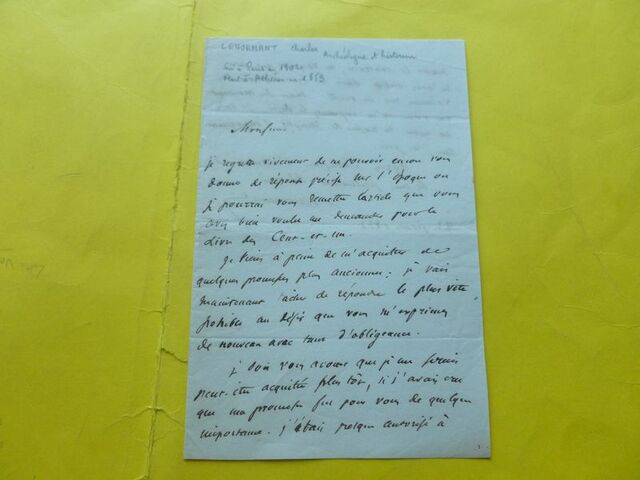 LENORMANT Charles Archéologue et historien
né à Paris en 1802
Mort à Athènes en 1859
Monsieur
je regrette vivement de ne pouvoir encore vous
donner de réponse précise sur l'époque où
je pourrai vous remettre l'article que vous
avez bien voulu me demander pour le
livre des Cent-et-un.
Je tiens à peine de m'acquitter de
quelques promesses plus anciennes : je vais
maintenant tâcher de répondre le plus vite
possible au désir que vous m'exprimez
de nouveau avec tant d'obligeance.
je dois vous avouer que je me serais
peut-être acquitté plus tôt, si j'avais cru
que ma promesse fut pour vous de quelque
importance. j'étais presque autorisé à